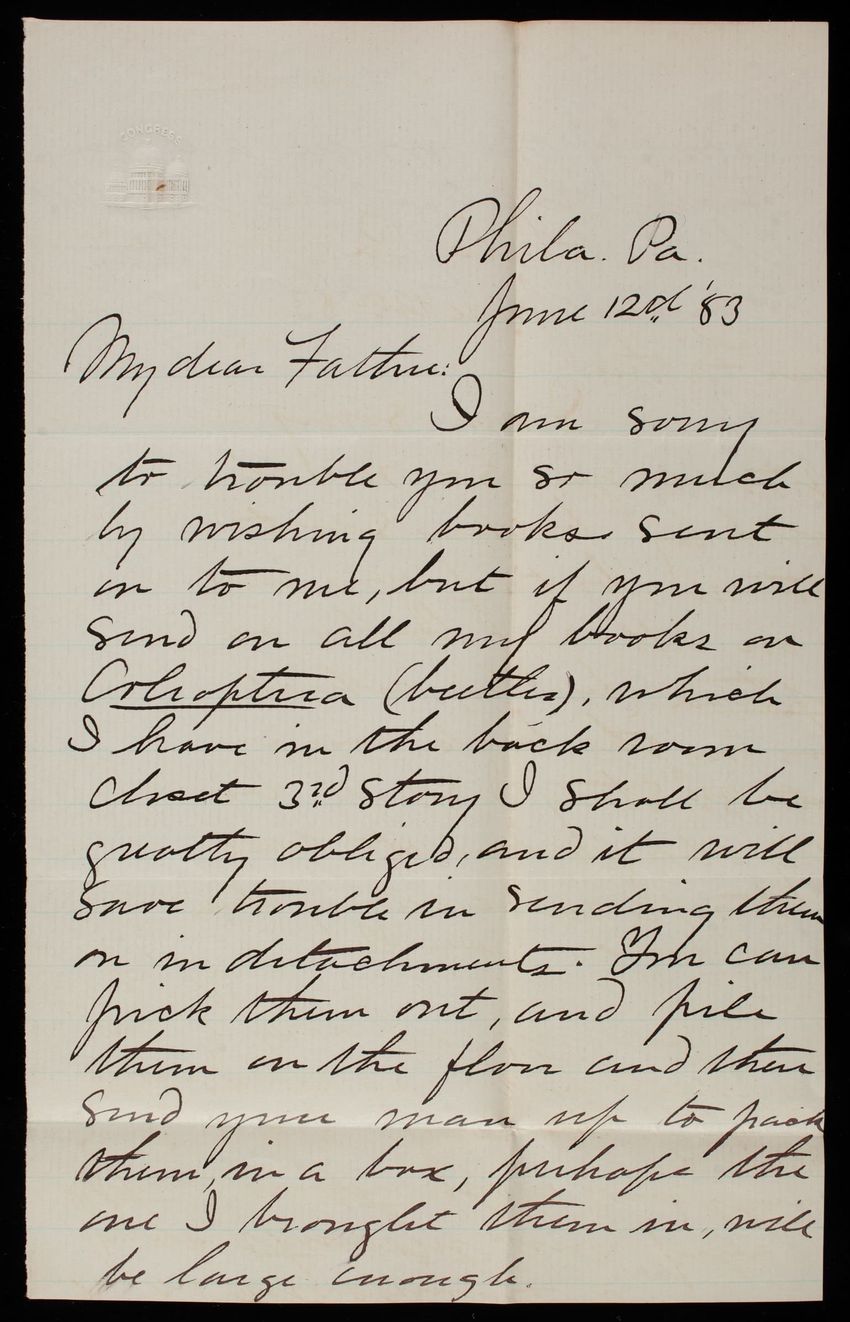 CONGRESS
Phila. Pa.
June 12d '83
My dear Father:
I am sorry
to trouble you so much
by wishing books sent
on to me, but if you will
send on all my books on
Coleoptera (beetles), which
I have in the back room
closet 3rd story I shall be
greatly obliged, and it will
save trouble in sending them
on in detachments. You can
pick them out, and pile
them on the floor and then
send your man up to pack
them, in a box, perhaps the
one I brought them in, will
be large enough.